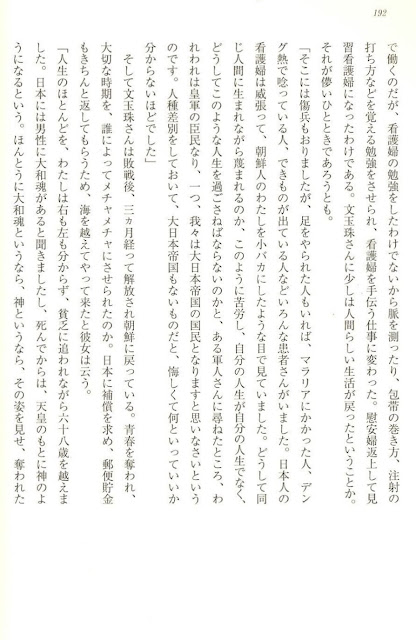 192
で働くのだが、看護婦の勉強をしたわけでないから脈を測ったり、包帯の巻き方、注射の
打ち方などを覚える勉強をさせられ、看護婦を手伝う仕事に変わった。慰安婦返上して見
習看護婦になったわけである。文玉珠さんに少しは人間らしい生活が戻ったということか。
それが儚いひとときであろうとも。
「そこには傷兵もおりましたが、足をやられた人もいれば、マラリアにかかった人、デン
グ熱で唸っている人、できものが出ている人などいろんな患者さんがいました。日本人の
看護婦は威張って、朝鮮人のわたしを小バカにしたような目で見ていました。どうして同
じ人間に生まれながら蔑まれるのか、このように苦労し、自分の人生が自分の人生でなく、
どうしてこのような人生を過ごさねばならないのかと、ある軍人さんに尋ねたところ、わ
れわれは皇軍の臣民なり、一つ、我々は大日本帝国の国民となりますと思いなさいという
のです。人種差別をしておいて、大日本帝国もないものだと、悔しくて何といっていいか
分からないほどでした」
そして文玉珠さんは敗戦後、三ヵ月経って解放され朝鮮に戻っている。青春を奪われ、
大切な時期を、誰によってメチャメチャにさせられたのか。日本に補償を求め、郵便貯金
もきちんと返してもらうため、海を越えてやって来たと彼女は云う。
「人生のほとんどを、わたしは右も左も分からず、貧乏に追われながら六十八歳を越えま
した。日本には男性に大和魂があると聞きましたし、死んでからは、天皇のもとに神のよ
うになるという。ほんとうに大和魂というなら、神というなら、その姿を見せ、奪われた